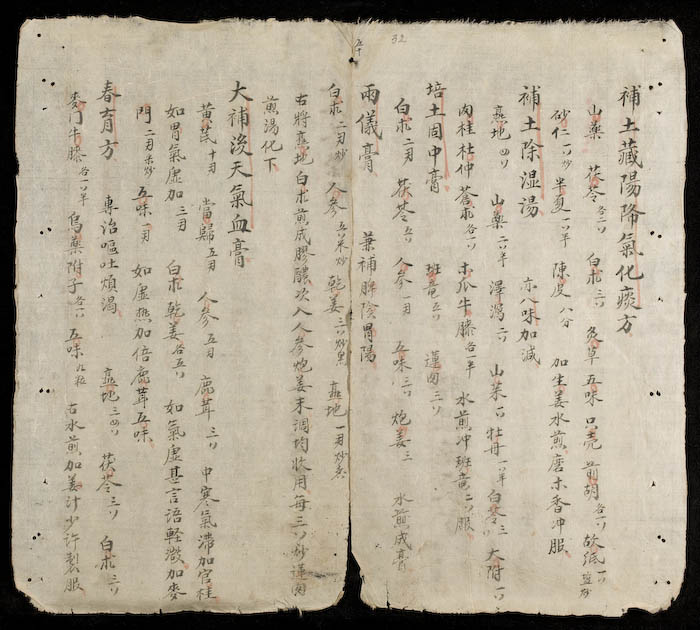 補土藏陽降氣化痰方
山藥 茯苓各二 白朮三 炙草五味只壳前胡各 故紙一 塩炒
砂仁一炒 半夏一半 陳皮八分 加生姜水煎磨木香冲服
補土除湿湯 亦八味加減
熟地四 山藥二半 澤瀉二 山茱一 牡丹一半 白苓三 大附一
肉桂杜仲蒼朮各 木瓜牛膝各一半 水煎冲班竜二服
培土固中膏 班竜五 蓮肉三
白朮二両 茯苓五 人參一両 五味三 炮姜三 水煎成膏
兩儀膏 兼補脾陰胃陽
白朮一両炒 人參五米炒 乾姜三炒黑 熟地一両炒
右將熟地白朮煎成膠醲次入人參炮姜末調均收用每三炒蓮肉
煎湯化下
大補後天氣血膏
黃芪十両 當歸五両 人參五両 鹿茸三 中寒氣滯加官桂
如胃氣虛加三両 白朮乾姜各五 如氣虛甚言語軽微加麥
門二両米炒 五味一両 如虛熱加倍鹿茸五味
春育方 專治嘔吐煩渴 熟地三四 茯苓三 白朮三
麥門牛膝各一半 烏藥附子各一 五味九粒 右水煎加姜汁少許製服
32
五十